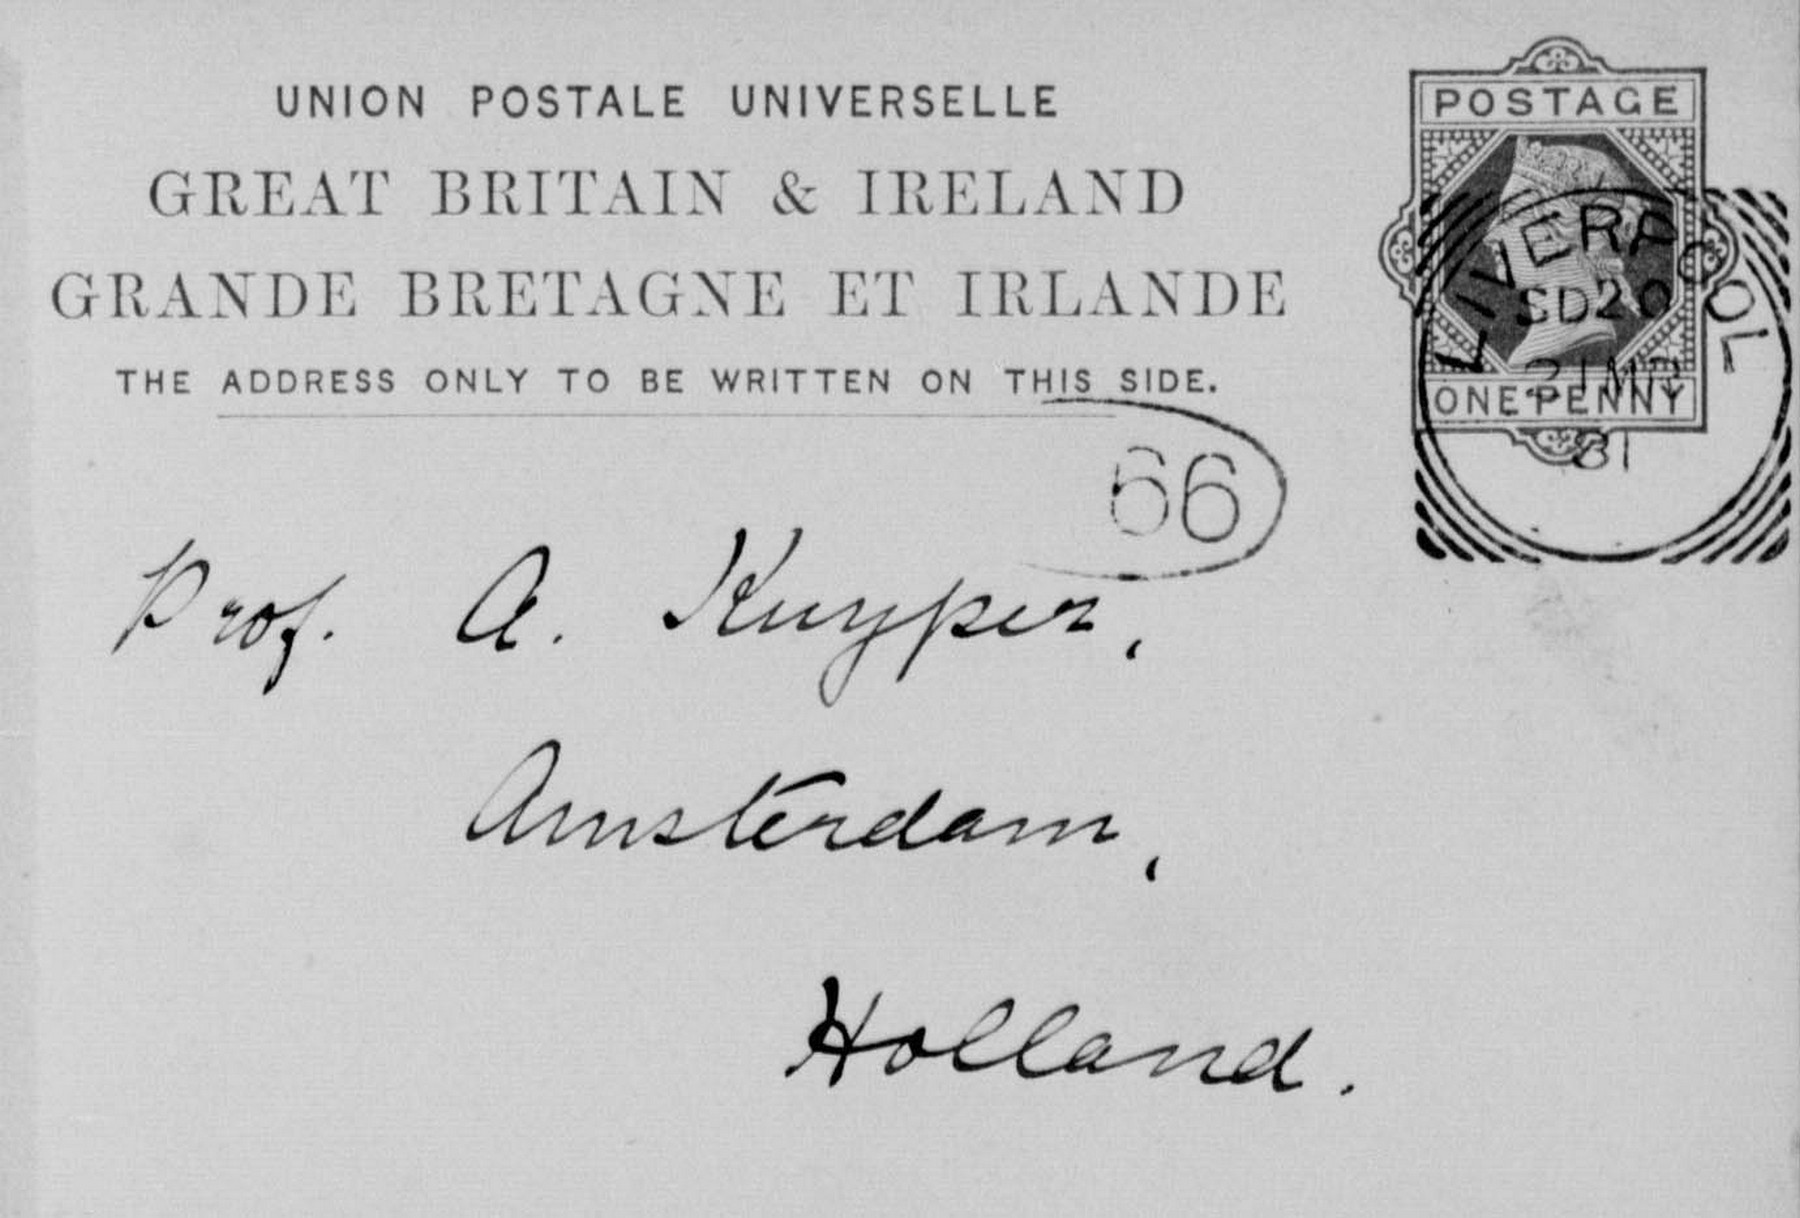 UNION POSTALE UNIVERSELLE
GREAT BRITAIN & IRELAND
GRANDE BRETAGNE ET IRLANDE
THE ADDRESS ONLY TO BE WRITTEN ON THIS SIDE.
POSTAGE
ONE PENNY
LIVERPOOL
SD20
81
66
Prof. A. Kuyper,
Amsterdam,
Holland.